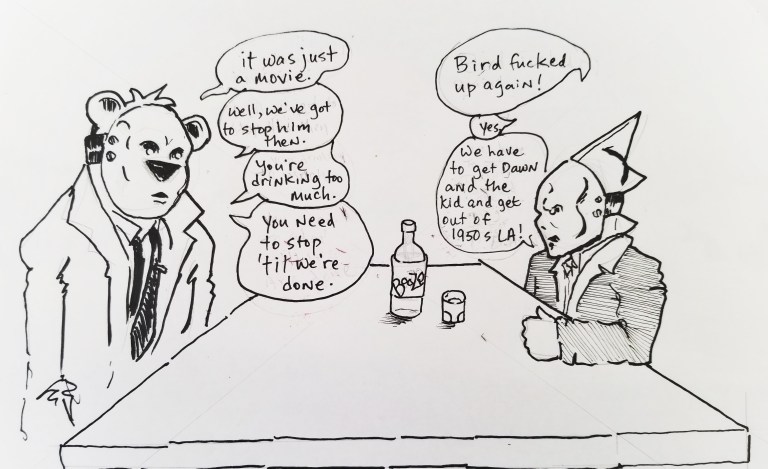 it was just
a movie.
Well, we've got
to stop him
then.
You're
drinking too
much.
You need
to stop
'til we're
done.
Bird fucked
up again!
Yes.
We have
to get Dawn
and the
kid and get
out of
1950s LA!
Booze